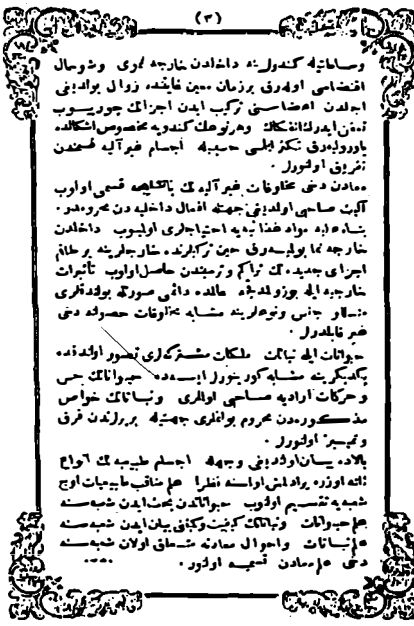 (٣)
وساطتيله كندولرينه داخلدن خارجه نموى وشو حال
اقتضاسى اوله‌رق بر زمان معين قابنده زوال بولديغى
اجلدن اعضاسنى تركيب ايدن اجزانك چوريوب
تعفن ايدرك انفكاك وهر نوعك كندويه مخصوص اشكالده
ياوروليه‌رق تكثر ايلمسى حسبيله اجسام غير آليه قسمندن
تفريق اولنور .
معادن دخى مخلوقات غير آليه نك قسمى اولوب
آليت صاحبى اولمديغى جهتله افعال داخليه دن محرومدر .
بناء عليه مواد غذائيه يه احتياجلرى اوليوب داخلدن
خارجه نما بوليه‌رق حين تركبلرنده خارجلرينه بر طاقم
اجزاى جديده نك تراكم وترصيندن حاصل اولوب تأثيرات
خارجيه ايله بوزولمدقجه عالمده دائمى صورتله بولندقلرى
مثللو جنس ونوعلرينه مشابه مخلوقات حصوله دخى
غير قابلدرلر .
حيوانات ايله نباتاتك ملكات مشتركه لرى تصور اولندقده
يكديكرينه مشابه كورينورلر ايسه‌ده حيواناتك حس
و حركات اراديه صاحبى اولملرى ونباتاتك خواص
مذكوره‌دن محروم بولنملرى جهتيله بربرلرندن فرق
وتمييز اولنورلر .
بالاده بيان اولنديغى وجهله اجسام طبيعيه نك انواع
ثلثه اوزره يرادلمش اولمسنه نظرا علم مناقب طبيعيات اوچ
شعبه يه تقسيم اولنوب حيواناتدن بحث ايدن شعبه سنه
علم حيوانات ونباتاتك كيفيت وكميتنى بيان ايدن شعبه سنه
علم نباتات واحوال معادنه متعلق اولان شعبه سنه
دخى علم معادن تسميه اولنور .